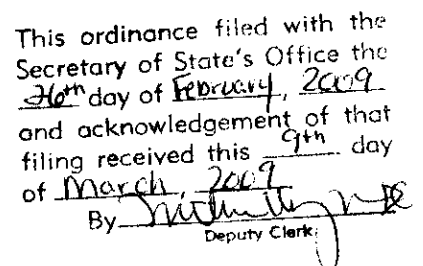 This ordinance filed with the
Secretary of State's Office the
26th day of February, 2009
and acknowledgement of that
filing received this 9th day
of March, 2009
By
Deputy Clerk